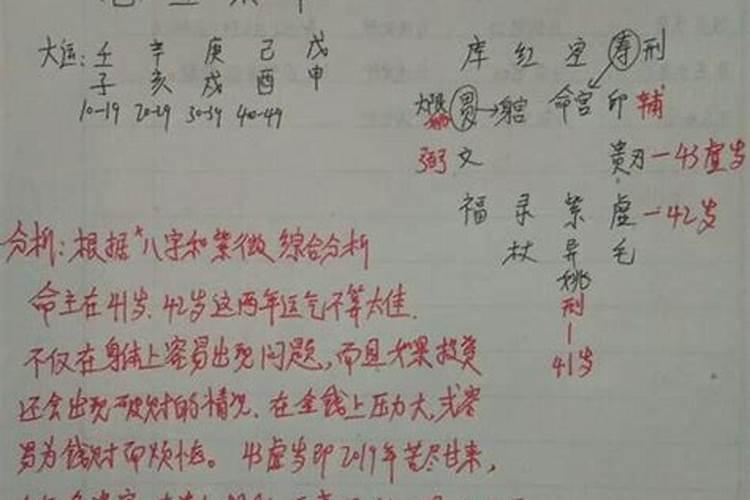 大运: 壬 辛 庚 己 戊
子 亥 戌 酉 申
10-19 20-29 30-39 40-49
库 红 空 寿 刑
大限 昌→ 命宫 印 辅
弼 文 贵 刃-43虚岁
福 录 紫 虚-42岁
杖 异 毛
姚
刑
41岁
分析:根据"八字和紫微综合分析
命主在41岁、42岁这两年运气不算太佳.
不仅在身体上容易出现问题,而且如果投资
还会出现破财的情况.在金钱上压力大,或容
易为钱财而烦恼。43虚岁即2019年苦尽甘来,